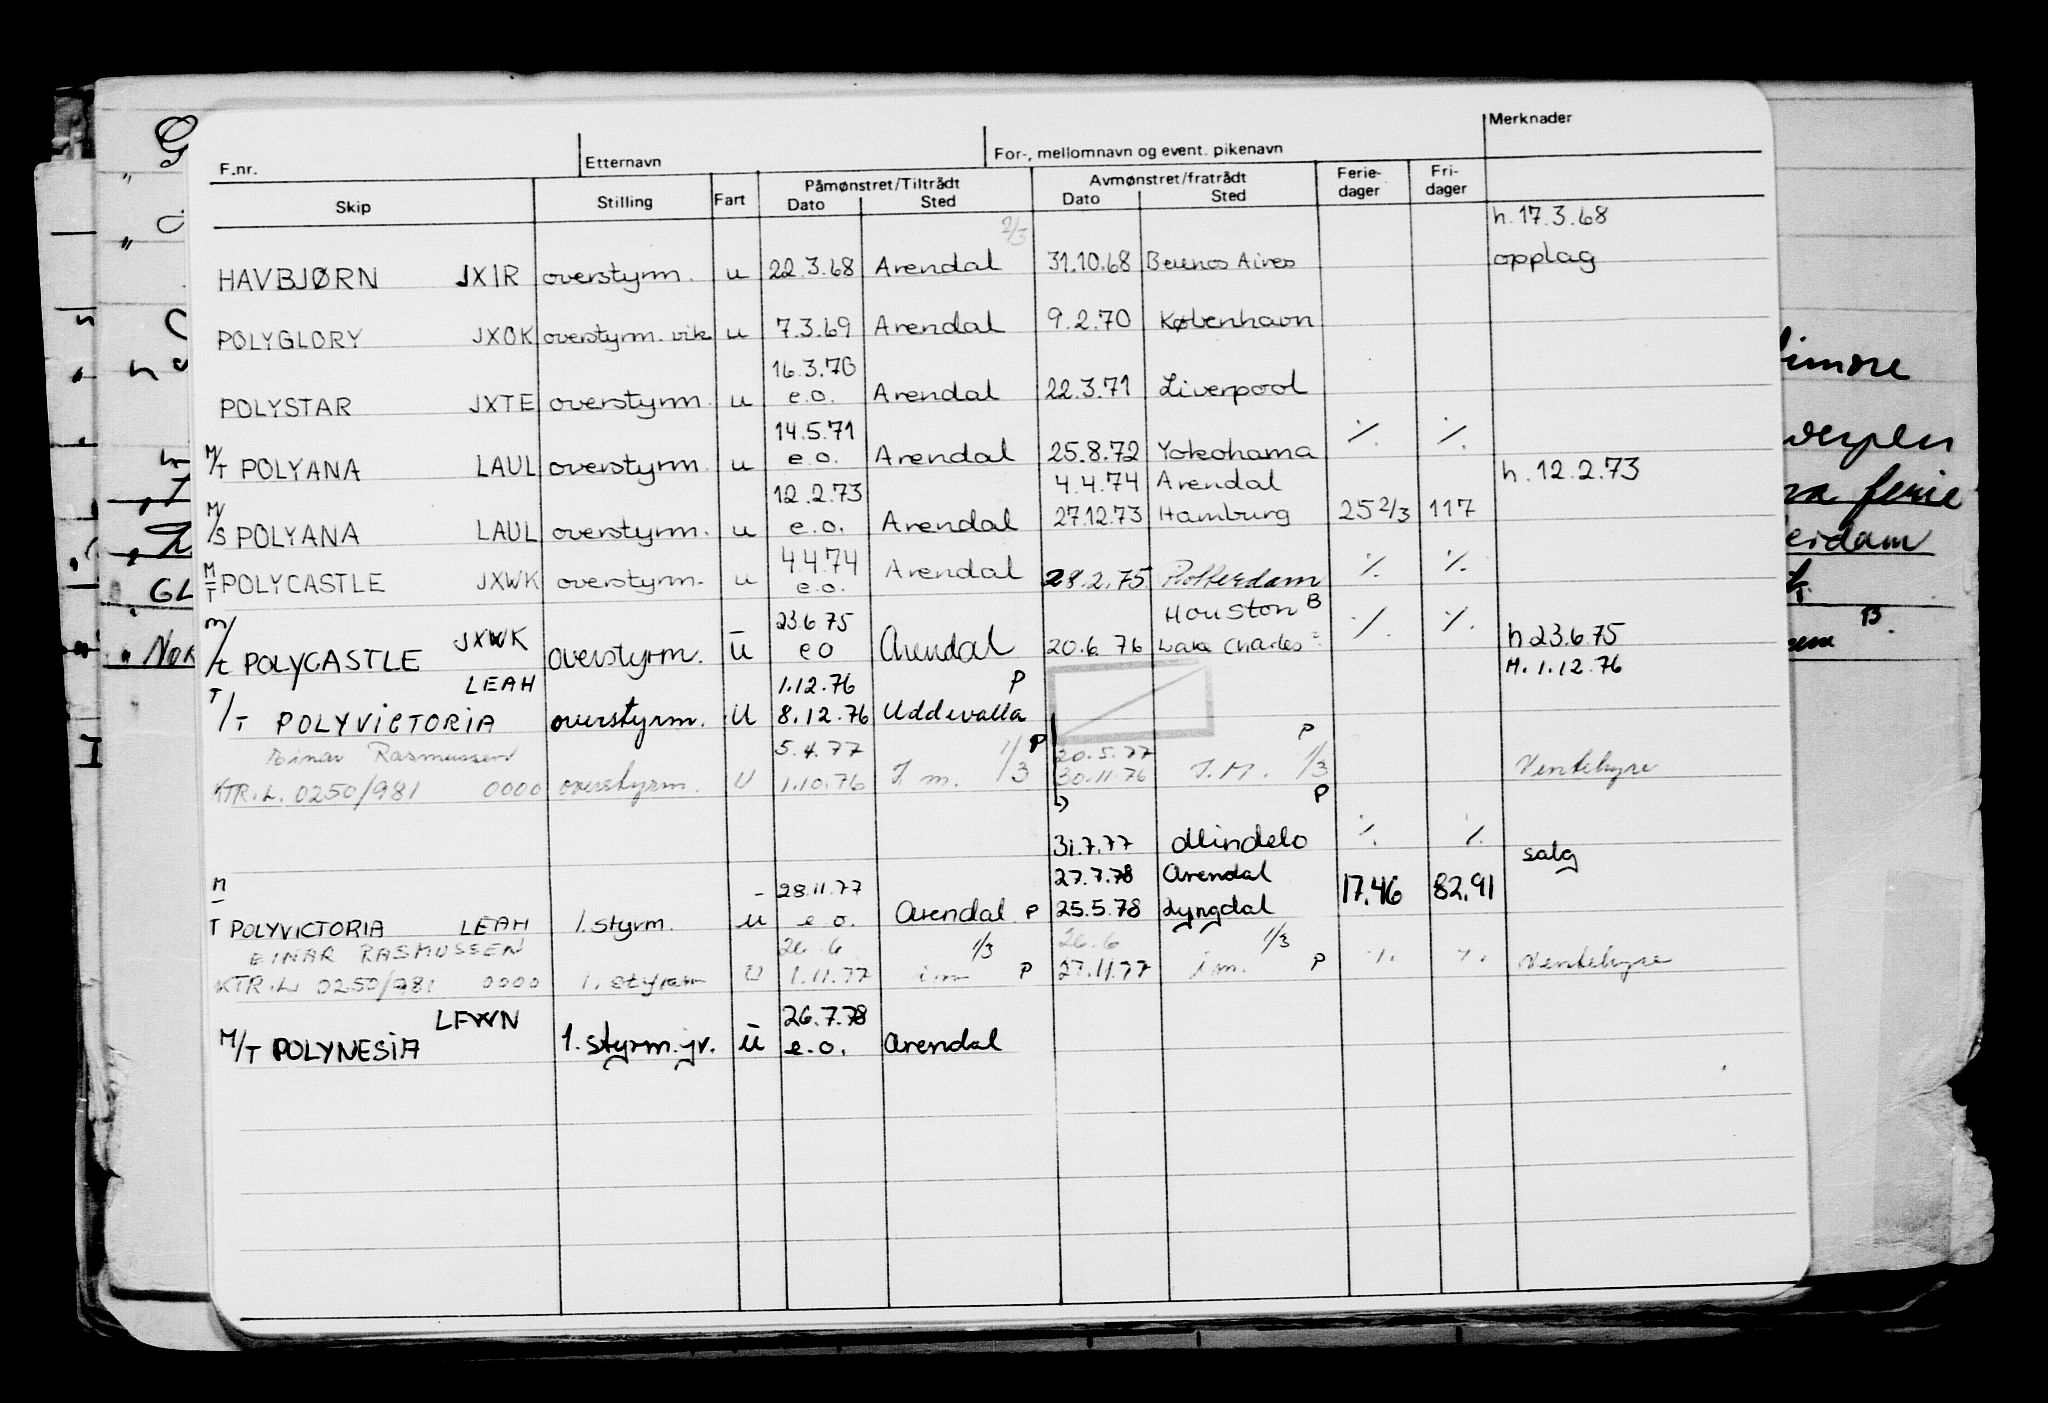 F.nr. Etternavn For-, mellomnavn og event. pikenavn Merknader
Skip Stilling Fart Påmønstret/Tiltrådt Avmønstret/fratrådt Ferie-dager Fri-dager
Dato Sted Dato Sted
2/3 h. 17.3.68
HAVBJØRN JXIR overstyrm. u 22.3.68 Arendal 31.10.68 Beuenos Aires opplag
POLYGLORY JXOK overstyrm. vik u 7.3.69 Arendal 9.2.70 København
16.3.70
POLYSTAR JXTE overstyrm. u e.o. Arendal 22.3.71 Liverpool
14.5.71
M/T POLYANA LAUL overstyrm. u e.o. Arendal 25.8.72 Yokohama ٪ ٪
12.2.73 4.4.74 Arendal h. 12.2.73
M/S POLYANA LAUL overstyrm. u e.o. Arendal 27.12.73 Hamburg 25 2/3 117
4.4.74
M/T POLYCASTLE JXWK overstyrm. u e.o. Arendal 28.2.75 Rotterdam ٪ ٪
23.6.75 Houston B
m/t POLYCASTLE JXWK overstyrm. u e o Arendal 20.6.76 Lake Charles " ٪ ٪ h 23.6.75
LEAH 1.12.76 P H. 1.12.76
T/T POLYVICTORIA overstyrm. U 8.12.76 Uddevalla
Einar Rasmussen 5.4.77 1/ P 20.5.77 P
KTR.L. 0250/981 0000 overstyrm. U 1.10.76 I.m. 1/3 30.11.76 I.M. 1/3 Ventehyre
P
31.7.77 Mindelo ٪ ٪
28.11.77 27.7.78 Arendal salg
M/T POLYVICTORIA LEAH 1. styrm. u e.o. Arendal P 25.5.78 Lyngdal 17.46 82.91
EINAR RASMUSSEN 26.6 1/3 26.6 1/3
KTR.L 0250/981 0000 1. styrm U 1.11.77 i m P 27.11.77 i m. P ٪ ٪ Ventehyre
LFWN 26.7.78
M/T POLYNESIA 1. styrm. jr. u e.o. Arendal